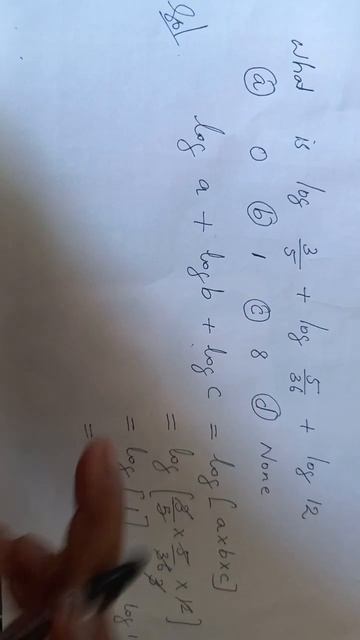 What is log 3/5 + log 5/36 + log 12
(a) 0 (b) 1 (c) 8 (d) None
log a + log b + log c = log [a×b×c]
= log [3/5 × 5/36 × 12]
= log [1]
=